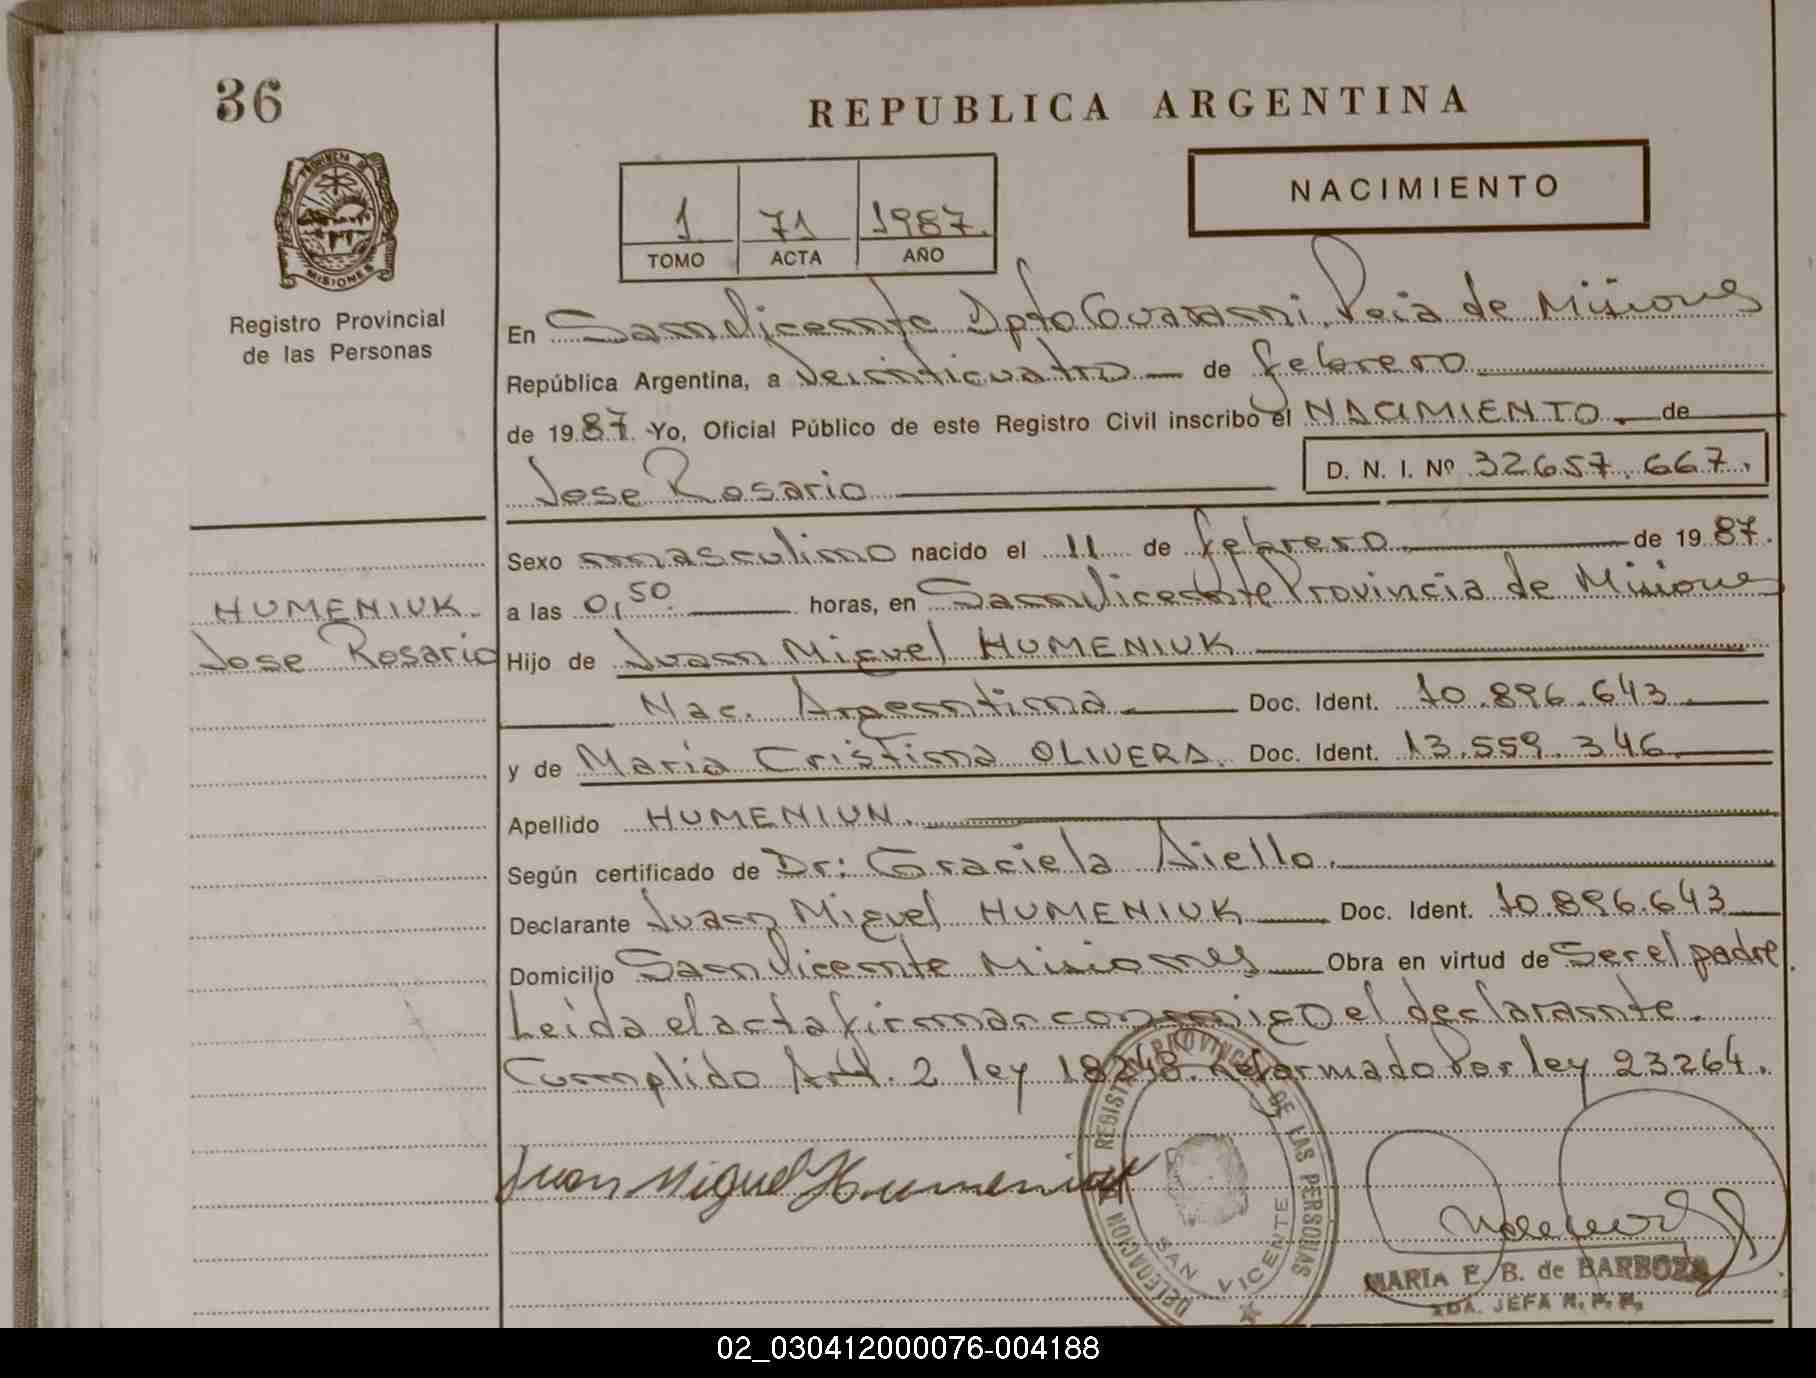 36
REPUBLICA ARGENTINA
PROVINCIA DE
MISIONES
Registro Provincial
de las Personas
1 71 1987.
TOMO ACTA AÑO
NACIMIENTO
En San Vicente Dpto Guarani, Pcia de Misiones
República Argentina, a Veinticuatro de febrero
de 1987. Yo, Oficial Público de este Registro Civil inscribo el NACIMIENTO de
Jose Rosario D. N. I. Nº 32.657.667.
Sexo masculino nacido el 11 de febrero de 1987.
HUMENIUK. a las 0,50 horas, en San Vicente Provincia de Misiones
Jose Rosario Hijo de Juan Miguel HUMENIUK
Nac. Argentina Doc. Ident. 10.896.643
y de María Cristina OLIVERA. Doc. Ident. 13.559.346
Apellido HUMENIUN.
Según certificado de Dr: Graciela Aiello.
Declarante Juan Miguel HUMENIUK Doc. Ident. 10.896.643
Domicilio San Vicente Misiones Obra en virtud de Ser el padre.
Leída el acta firman conmigo el declarante.
Cumplido Art. 2 ley 18248. reformado Por ley 23264.
Juan Miguel Humeniuk
DELEGACION REGISTRO PROVINCIAL DE LAS PERSONAS
SAN VICENTE
MARIA E. B. de BARBOZA
JEFA R. P. P.
02_030412000076-004188